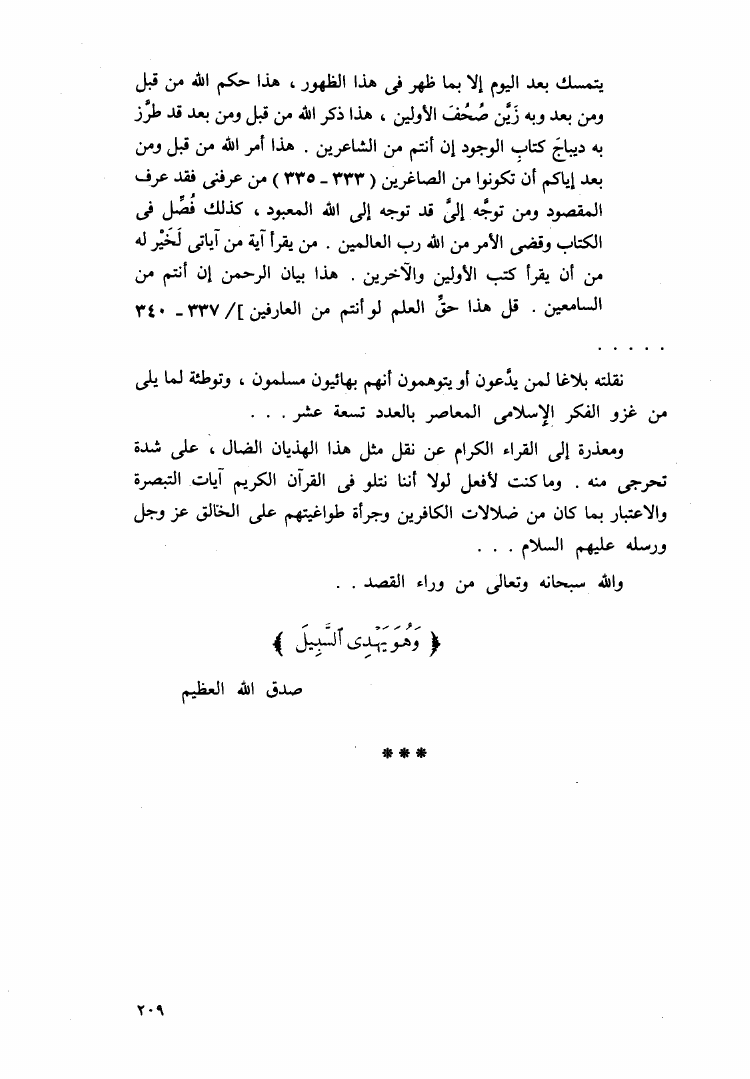 يتمسك بعد اليوم إلا بما ظهر فى هذا الظهور ، هذا حكم الله من قبل
ومن بعد وبه زَيَّن صُحُفَ الأولين ، هذا ذكر الله من قبل ومن بعد قد طرَّز
به ديباجَ كتابِ الوجود إن أنتم من الشاعرين . هذا أمر الله من قبل ومن
بعد إياكم أن تكونوا من الصاغرين ( ٣٣٣ ـ ٣٣٥ ) من عرفنى فقد عرف
المقصود ومن توجَّه إلىَّ قد توجه إلى الله المعبود ، كذلك فُصِّل فى
الكتاب وقضى الأمر من الله رب العالمين . من يقرأ آية من آياتى لَخَيْر له
من أن يقرأ كتب الأولين والآخرين . هذا بيان الرحمن إن أنتم من
السامعين . قل هذا حقِّ العلم لو أنتم من العارفين ]/ ٣٣٧ ـ ٣٤٠
. . . . .
نقلته بلاغا لمن يدَّعون أو يتوهمون أنهم بهائيون مسلمون ، وتوطئة لما يلى
من غزو الفكر الإسلامى المعاصر بالعدد تسعة عشر . . .
ومعذرة إلى القراء الكرام عن نقل مثل هذا الهذيان الضال ، على شدة
تحرجى منه . وما كنت لأفعل لولا أننا نتلو فى القرآن الكريم آيات التبصرة
والاعتبار بما كان من ضلالات الكافرين وجرأة طواغيتهم على الخالق عز وجل
ورسله عليهم السلام . . .
والله سبحانه وتعالى من وراء القصد . .
﴿ وَهُوَ يَهْدِى ٱلسَّبِيلَ ﴾
صدق الله العظيم
* * *
٢٠٩